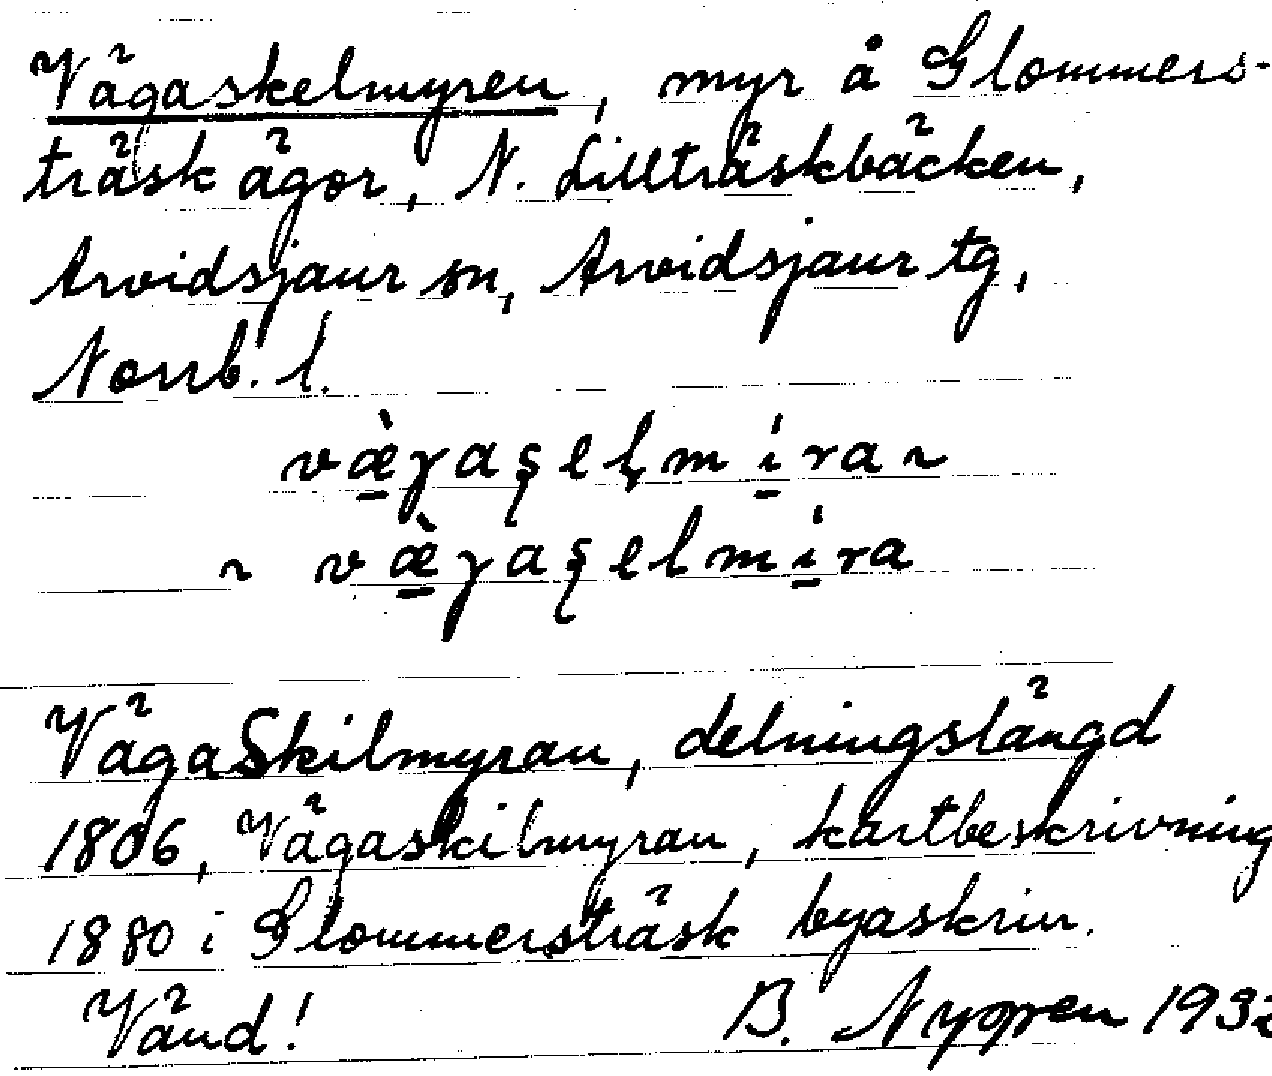 Vägaskelmyren, myr å Glommers-
träsk ägor, N. Lillträskbäcken,
Arvidsjaur sn, Arvidsjaur tg,
Norrb. l.
væ̱̀ɣaʂelm í̱ra ~
~ væ̱̀ɣaʂelmí̱ra
VägaSkilmyran, delningslängd
1806, Vägaskilmyran, kartbeskrivning
1880 i Glommersträsk byaskrin.
Vänd! B. Nyppen 1932